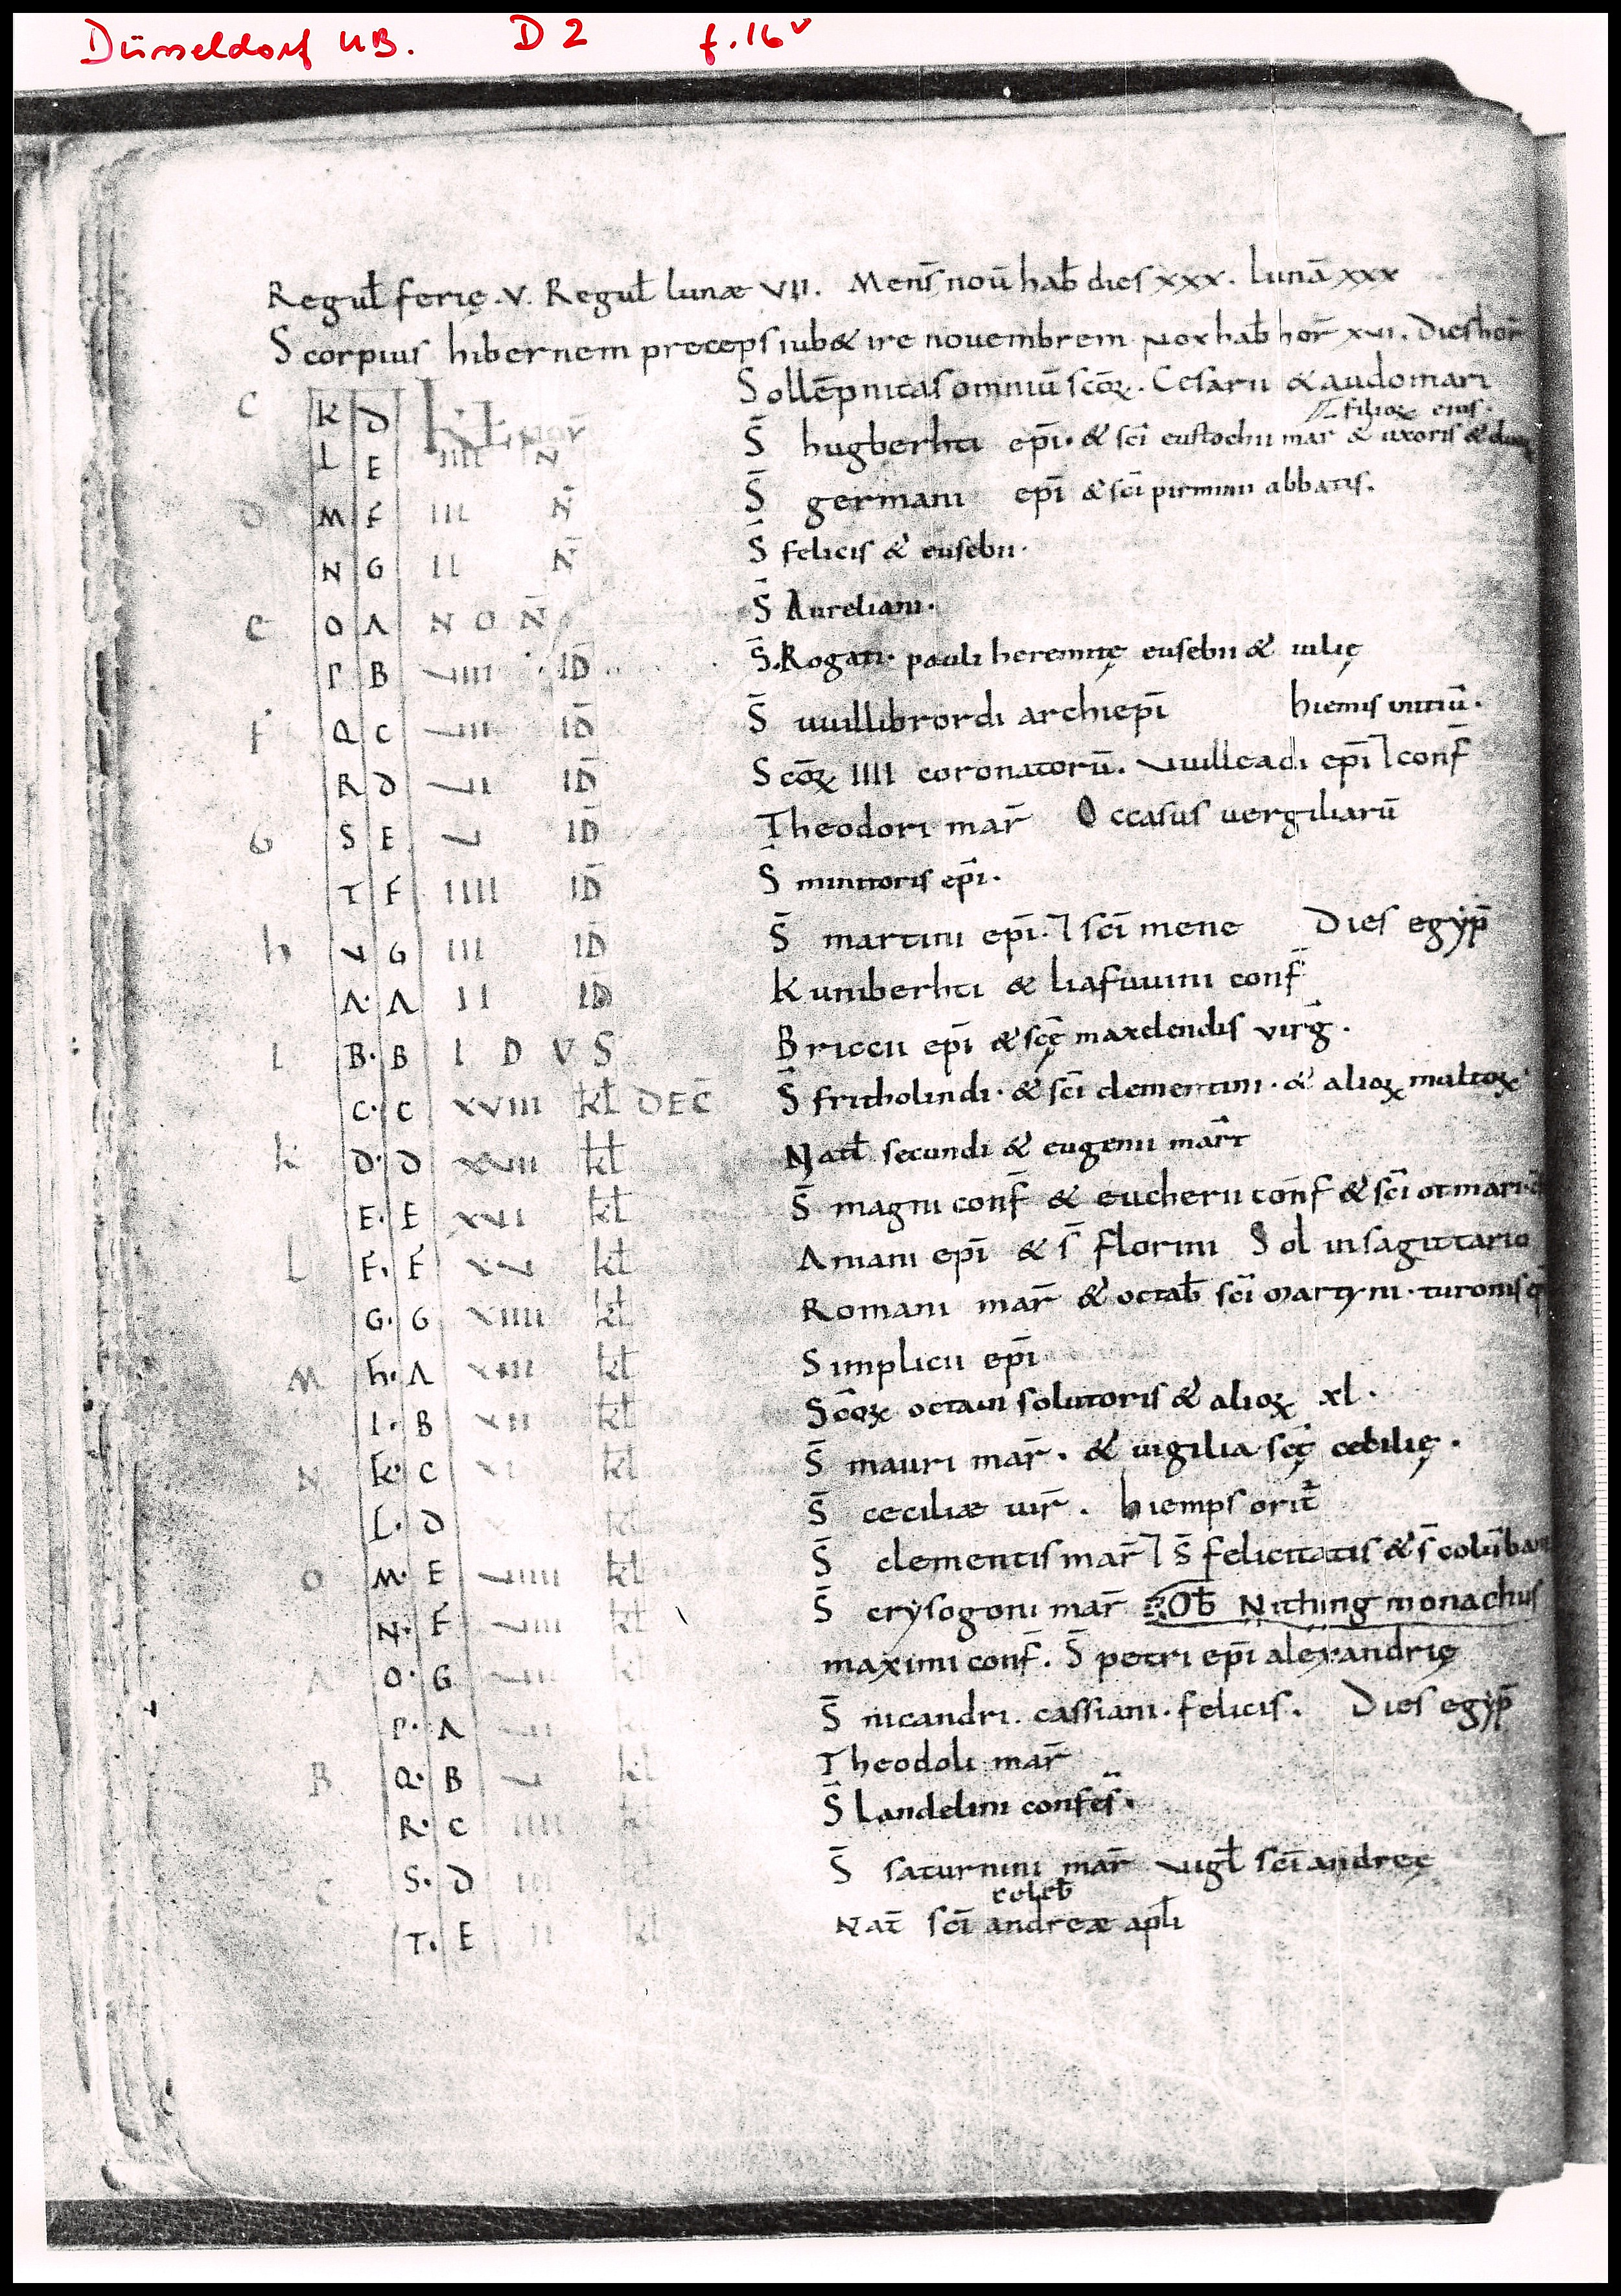 Düsseldorf UB. D 2 f. 16v
Regul̄ ferię . V . Regul̄ lunæ VII . Mens̄ nou̅ hab̄ dies xxx . Luna̅ xxx
Scorpius hibernem preceps iub& ire nouembrem Nox hab̄ hor̄ xvi . Dies hor̄
C K D KL Nov̄ Solle̅pnitas omniu̅ sc̅oꝝ . Cesarii & audomari
filioꝝ eius .
L E IIII N̄ S̄ hugberhti ep̄i . & sc̄i eustochii mar̄ & uxoris &
D M F III N̄ S̄ germani ep̄i & sc̄i pirminii abbatis .
N G II N̄ S̄ felicis & eusebii .
E O A N O N̄ S̄ Aureliani .
P B VIIII ID̄ S̄ . Rogati . pauli heremitę eusebii & iulię
F Q C VIII ID̄ S̄ uuillibrordi archiep̄i hiemis initiu̅ .
R D VII ID̄ Sc̅oꝝ IIII coronatoru̅ . Vuilleadi ep̄i ⁊ conf̄
G S E V ID̄ Theodori mar̄ Occasus uergiliaru̅
T F IIII ID̄ S̄ minitoris ep̄i .
h V G III ID̄ S̄ martini ep̄i . ⁊ sc̄i mene Dies egyp̄
A . A II ID̄ Kuniberhti & liafuuini conf̄
I B . B I D V S Briccii ep̄i & sc̄ę maxelendis virg̅ .
C . C XVIII kl̄ DEC̄ S̄ fritholindi . & sc̄i clementini . & alioꝝ multoꝝ
K D . D XVII kl̄ Natl̄ secundi & eugenii mar̄t
E . E XVI kl̄ S̄ magni conf̄ & eucherii conf̄ & sc̄i otmari .
L F . F XV kl̄ Aniani ep̄i & s̄ florini Sol in sagittario
G . G XIIII kl̄ Romani mar̄ & octab̄ sc̄i martyni . turonis
M h . A XIII kl̄ Simplicii ep̄i
I . B XII kl̄ Sc̅oꝝ octaui solutoris & alioꝝ xl .
N K . C XI kl̄ S̄ mauri mar̄ . & uigilia sc̄ę cecilię .
L . D kl̄ S̄ ceciliæ uir̄ . hiemps orit̄
O M . E VIIII kl̄ S̄ clementis mar̄ ⁊ S̄ felicitatis & s̄ colu̅bani
N . F VIII kl̄ S̄ crysogoni mar̄ Ob̄ Nithing monachus
A O . G VII kl̄ maximi conf̄ . S̄ petri ep̄i alexandrię
P . A VI S̄ nicandri . cassiani . felicis . Dies egyp̄
B Q . B V kl̄ Theodoli mar̄
R . C IIII kl̄ S̄ Landelini confes̄ .
C S . D III S̄ saturnini mar̄ Vigl̄ sc̄i andreę
celeb̄
T . E II kl̄ Nat̄ sc̄i andreæ apl̄i